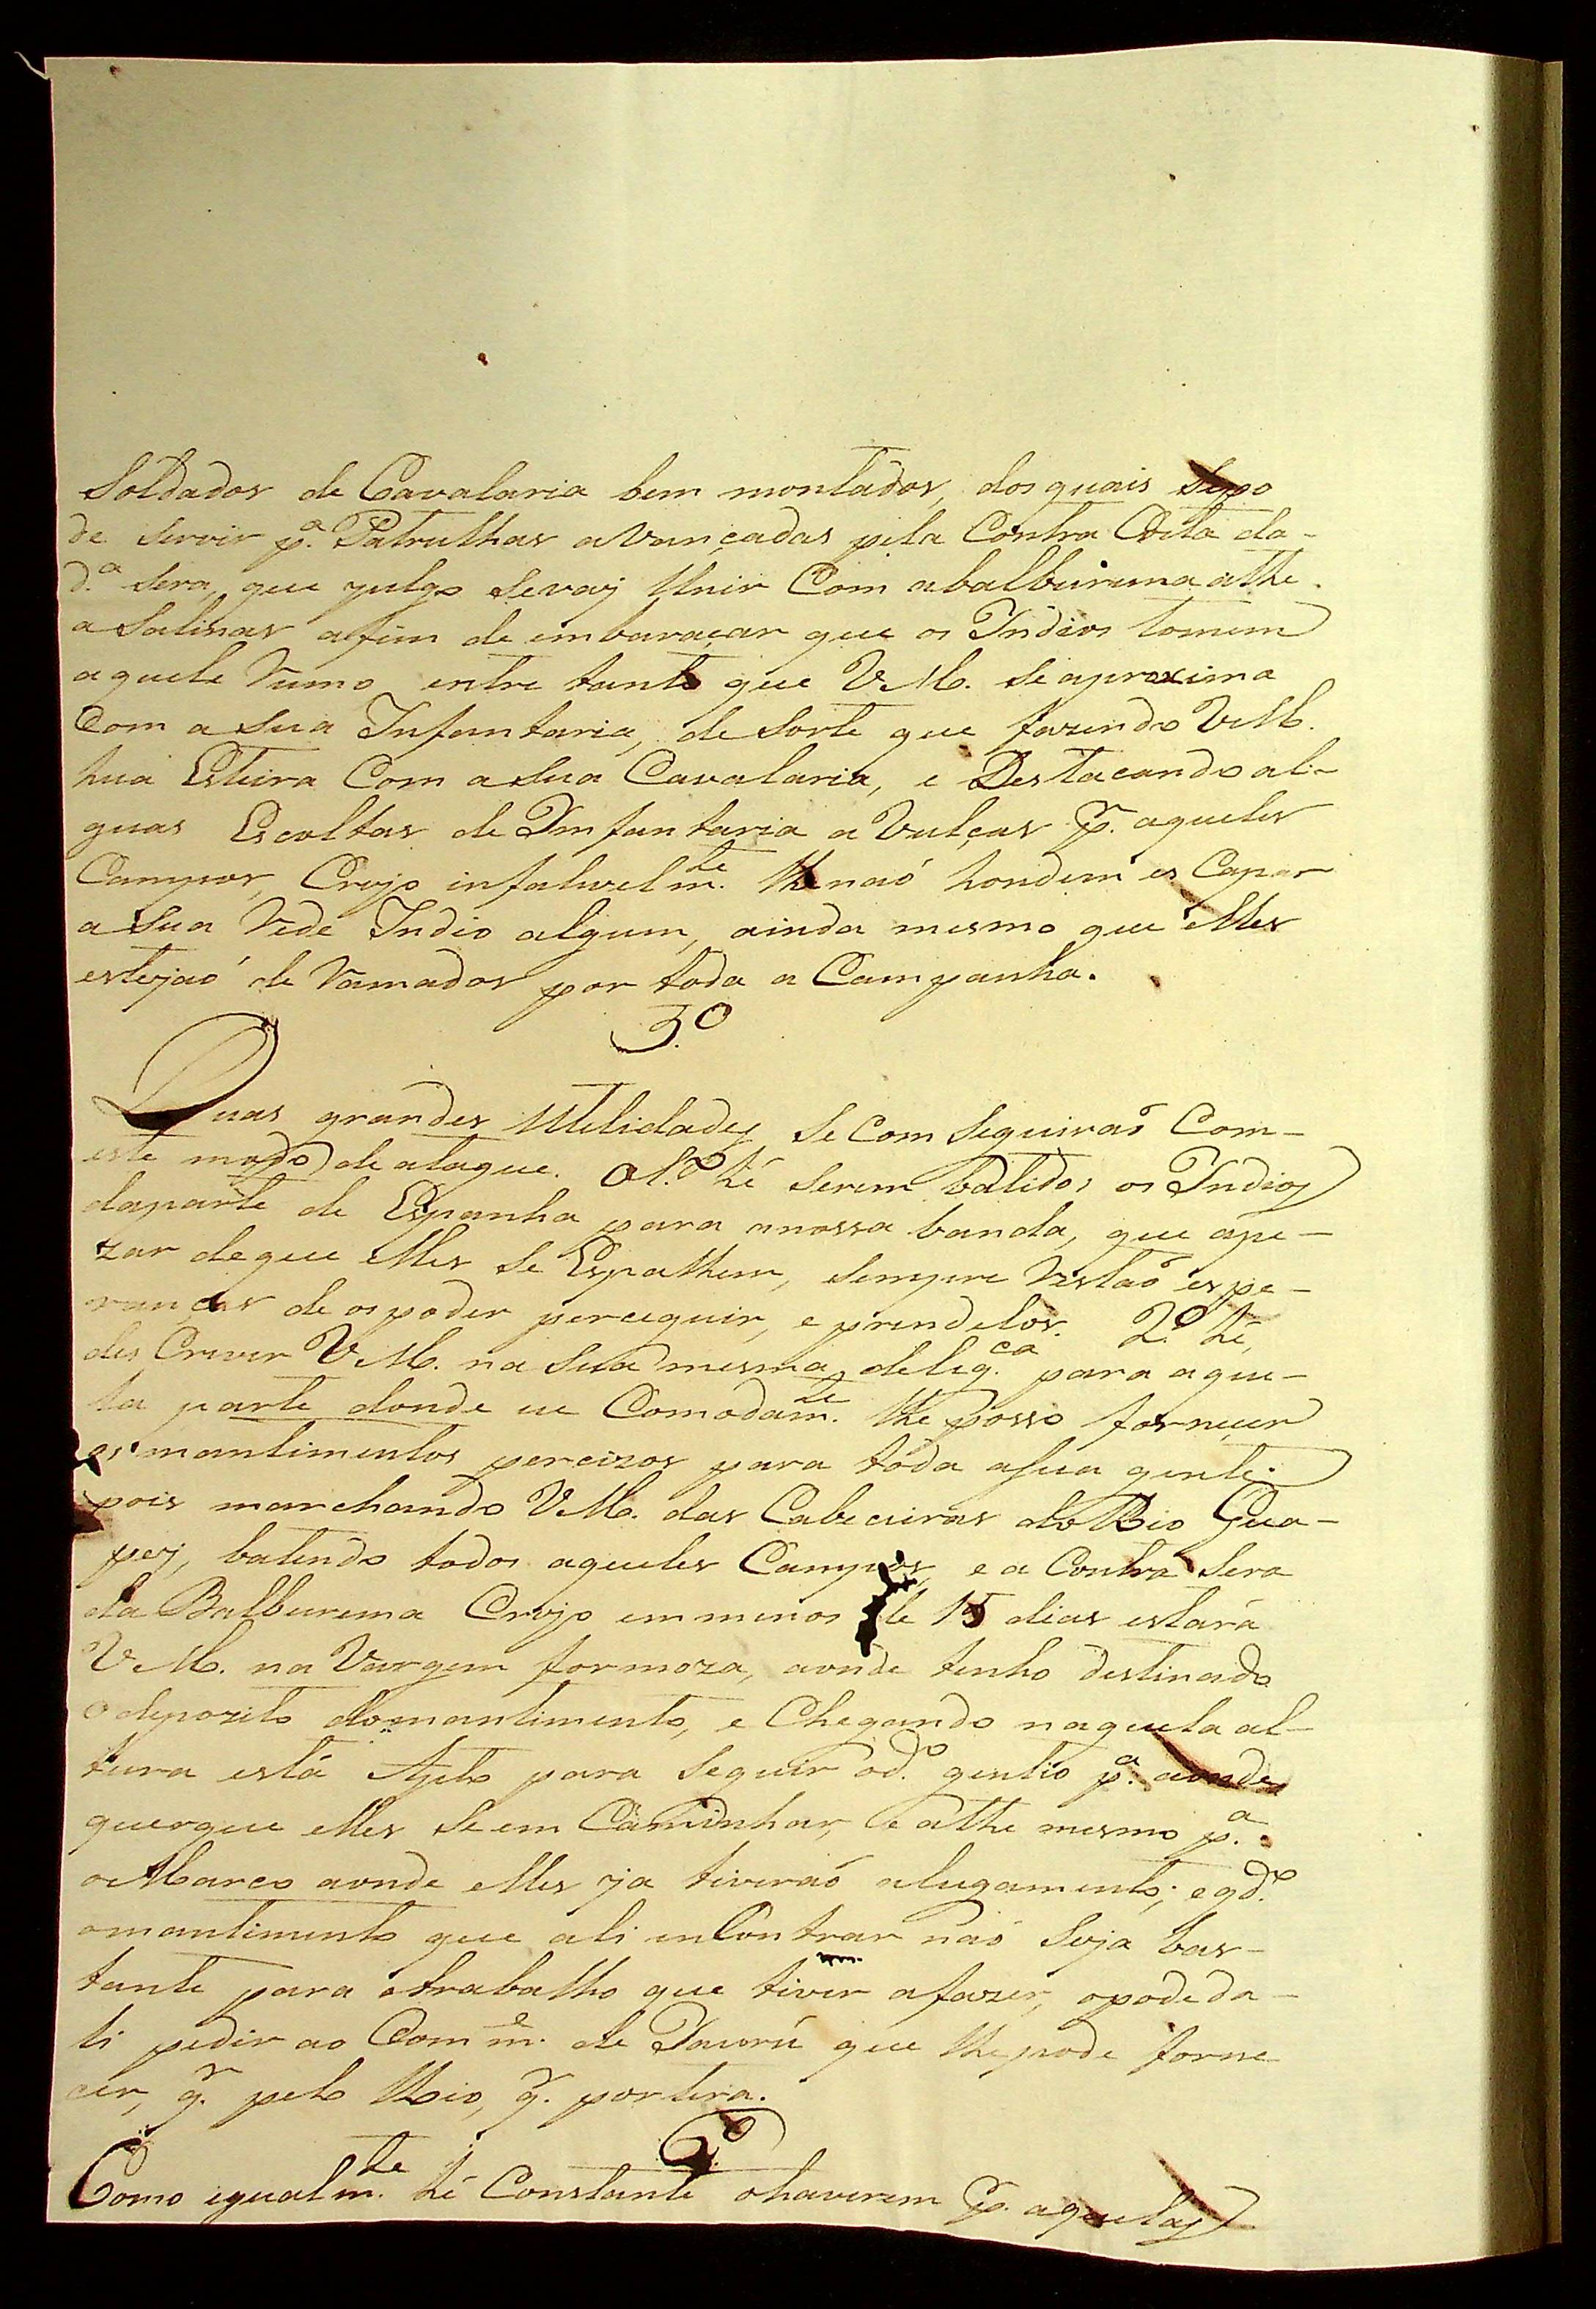 Soldados de Cavalaria bem montados, dos quais Sepo
de servir p.ª Patrulhas avançadas pela Contra Costa da-
d.ª Sera, que julgo Sevay Unir Com abalburema, athe
a Salinas afim de embaraçar que os Indios tomem
aquele Rumo entre tanto que V M. se aproxima
Com a sua Infantaria, de Sorte que fazendo V M.
hua Esteira Com a Sua Cavalaria, e Destacando al-
guas Escoltas de Imfantaria a Vulças p.r aqueles
Campos, Creyo infalivelm.te lhe naó hondem es Capar
a Sua Rede Indio algum, ainda mesmo que elles
estejaó de Ramados por toda a Campanha.
3.º
Duas grandes Utelidades Se Com Seguiraó Com-
este modo de ataque. O 1.º hé Serem batidos os Indios
daparte de Espanha para anossa banda, que ape-
zar deque elles se Espalhem, Sempre Restaó espe-
ranças de os poder perceguir, e prendelos. 2.º hé,
des Crever V M. na Sua mesma delig.ca para aque-
la parte donde eu Comodam.te lhe posso forneçer
os mantimentos percizos para toda aSua gente
pois marchando V M. das Cabeceiras do Rio Gua-
pey, batendo todos aqueles Campos, e a Contra Sera
da Balburema Creyo em menos de 15 dias estará
V M. na Vargem formoza, aonde tenho destinado
o depozito domantimento, e Chegando naquela al-
tura está Apto para Seguir od.º gentio p.ª aonde
querque elles Se em Caminhar, e athe mesmo p.ª
o Marco aonde elles ja tiveraó alugamento; e q.do
omantimento que ali en Contrar naó Seja bas-
tante para otrabalho que tiver afazer, opode da-
li pedir ao Comm.e de Jaurú que lhe pode forne
cer, q.r pelo Rio, q.r por tera.
Como igualm.te hé Constante ohaverem p.r aquelas